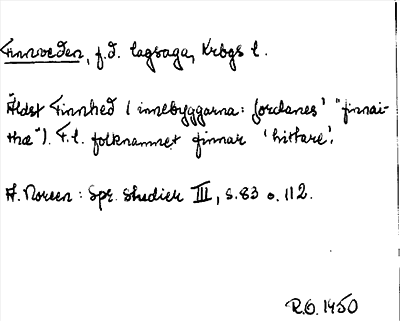 Finnveden, f.d. lagsaga, Krbgs l.
Äldst Finnhed (innebyggarna: Jordanes' "finnai-
thæ"). T.l. folknamnet finnar 'hittare'.
A. Noreen: Spr. studier III, s. 83 o. 112.
R.O. 1450